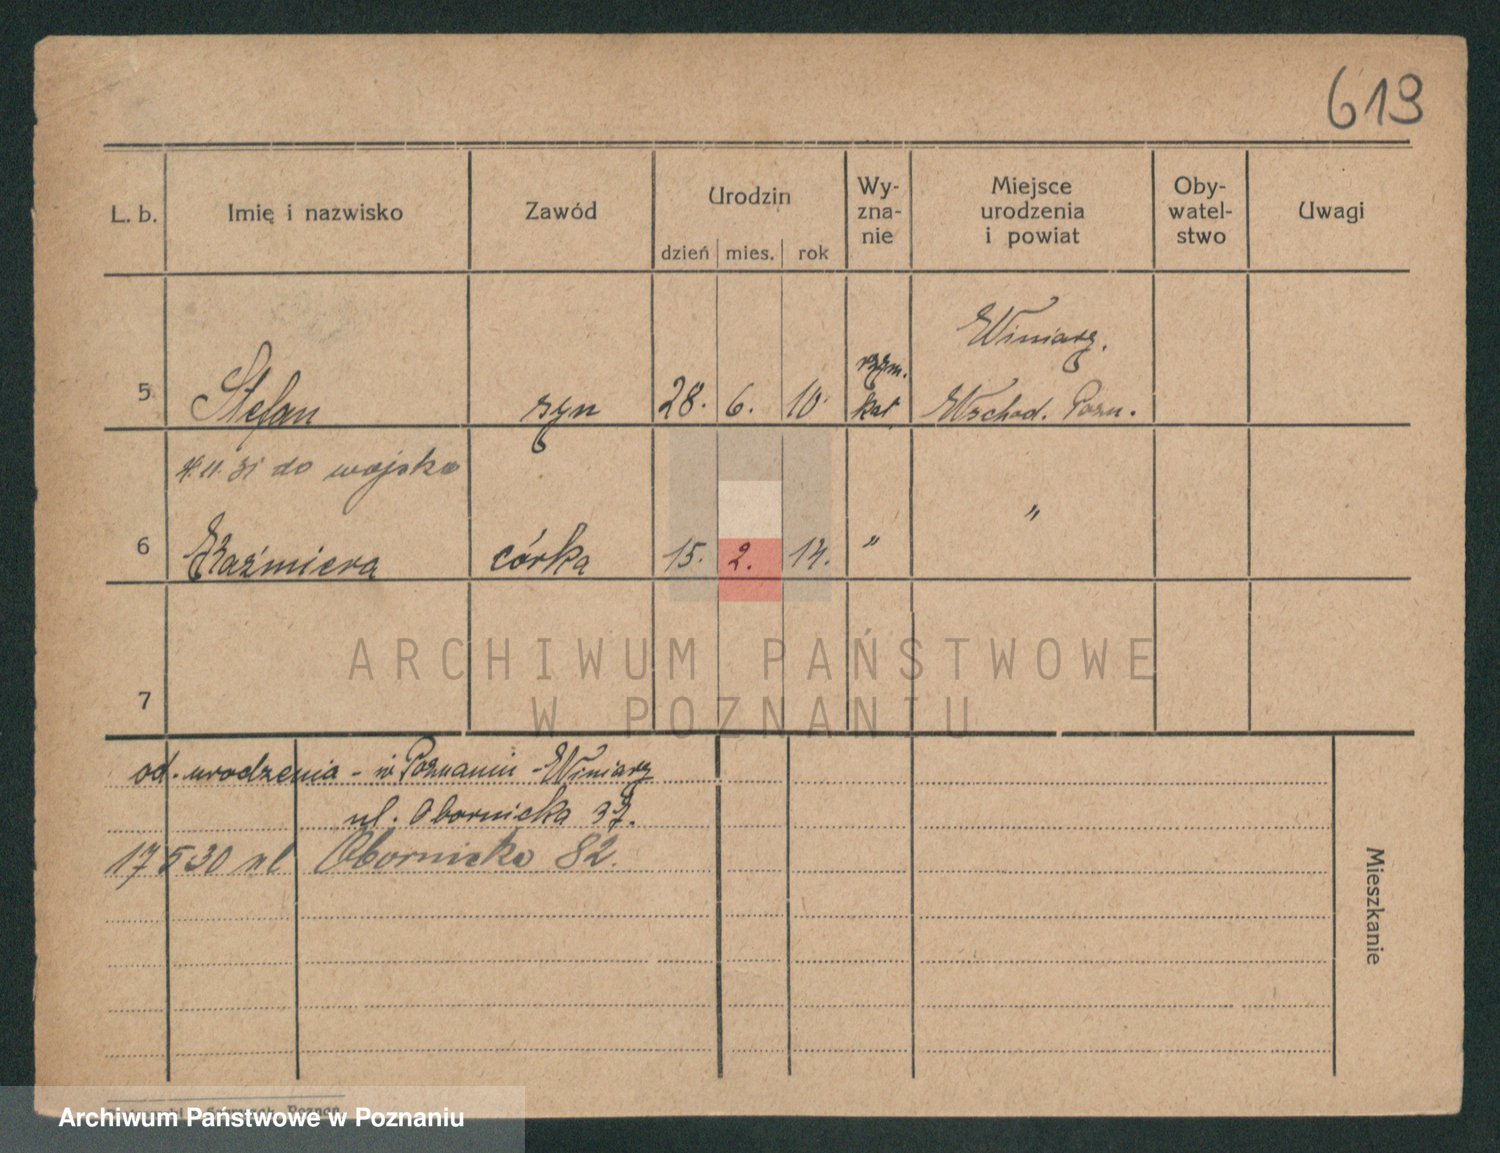 619
L. b. Imię i nazwisko Zawód Urodzin Wy-zna-nie Miejsce urodzenia i powiat Oby-watel-stwo Uwagi
dzień mies. rok
Winiary.
5 Stefan syn 28. 6. 10. rzym. kat Wschod. Pozn.
4.11.31 do wojska
6 Kaźmiera córka 15. 2. 14. " "
ARCHIWUM PAŃSTWOWE
7
W POZNANIU
od. urodzenia - w Poznaniu - Winiary
ul. Obornicka 37.
17 5 30 ul Obornicka 82.
Mieszkanie
Archiwum Państwowe w Poznaniu